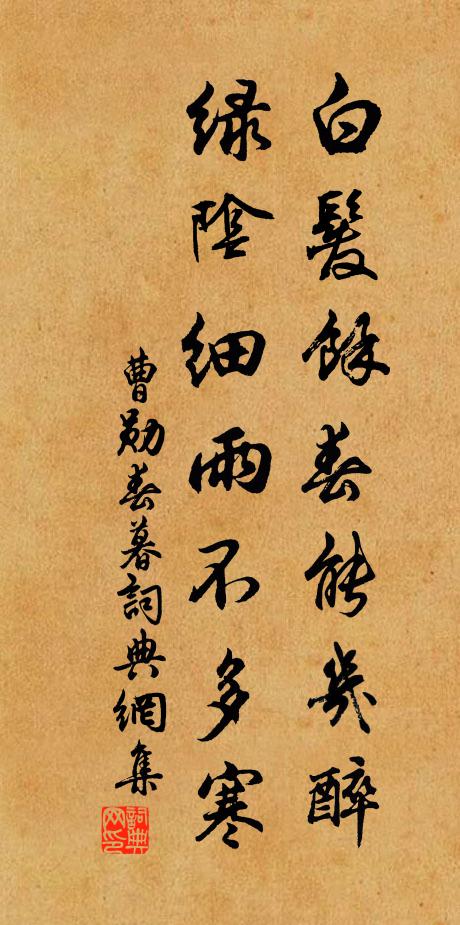 白髮餘春能幾醉
綠陰細雨不多寒
曹勛春暮詞典網集
詞典网印